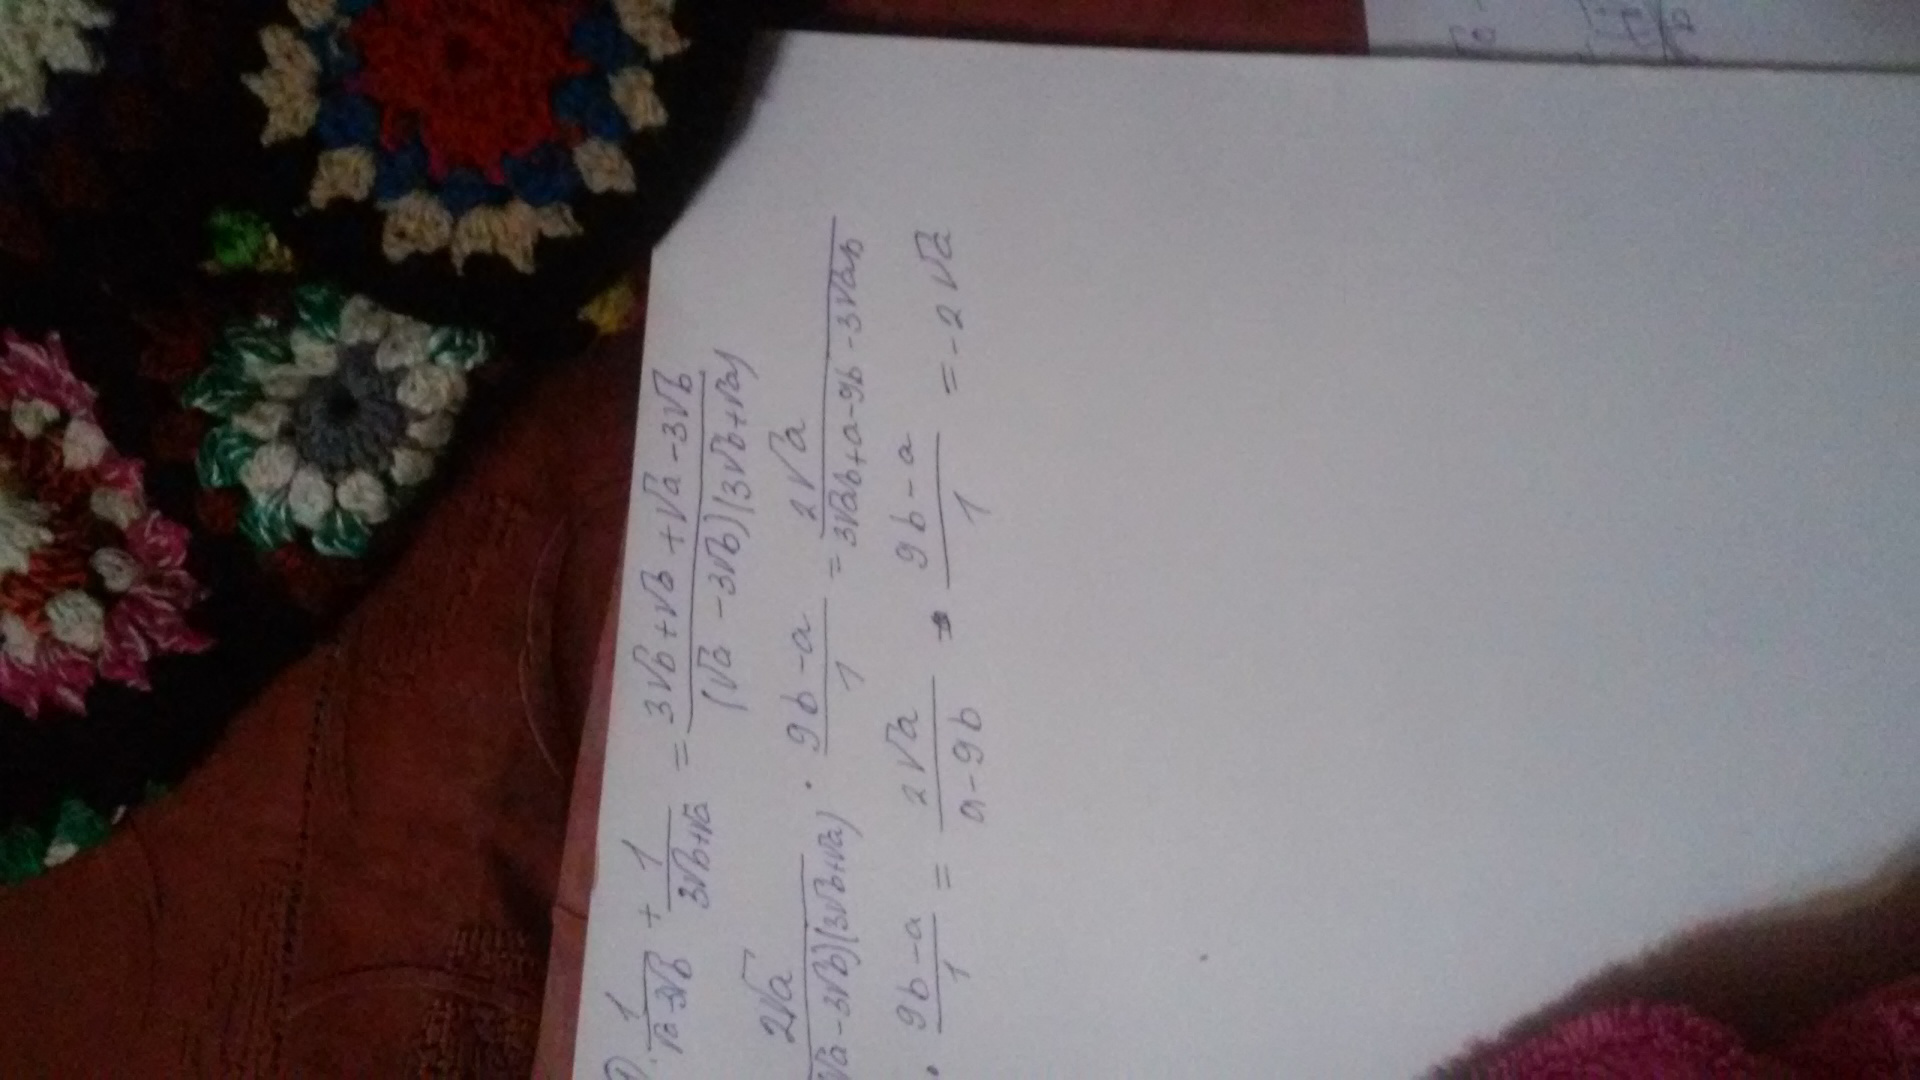 1). 1/(√a-3√b) + 1/(3√b+√a) = (3√b+√b+√a-3√b)/((√a-3√b)(3√b+√a))
2√a/(√a-3√b)(3√b+√a) · (9b-a)/1 = 2√a/(3√ab+a-9b-3√ab)
· (9b-a)/1 = 2√a/(a-9b) · (9b-a)/1 = -2√a